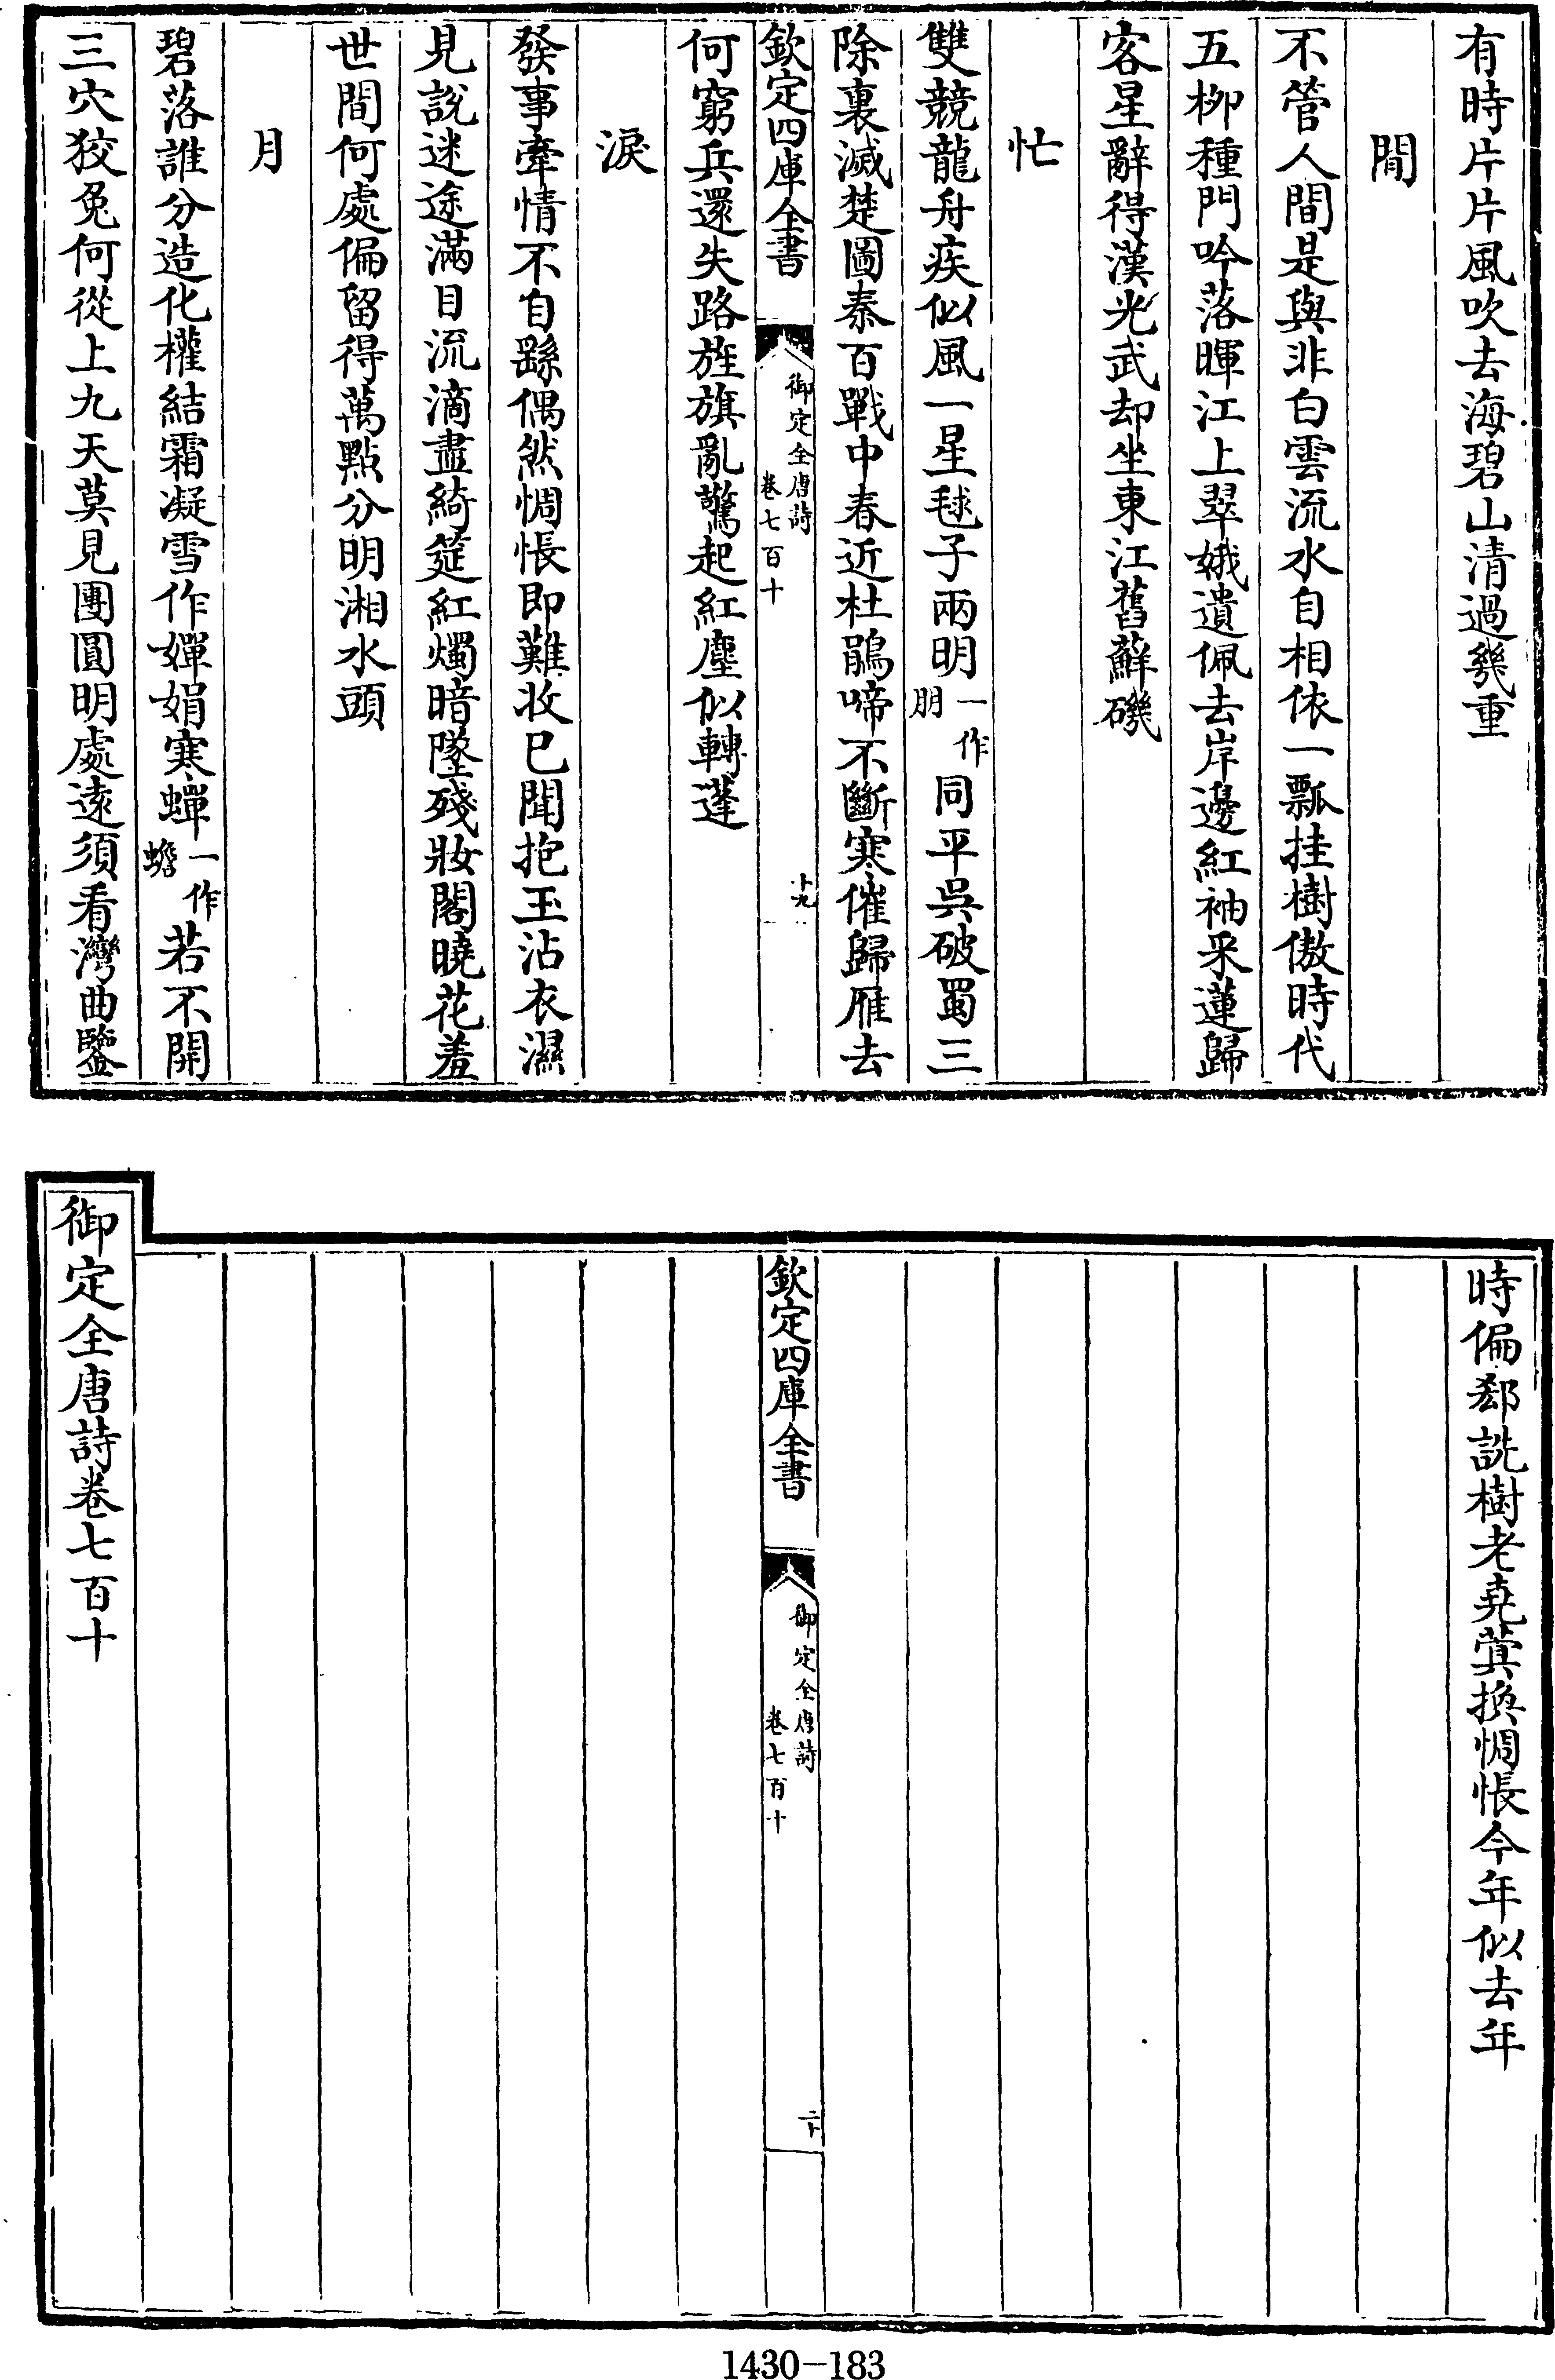 有時片片風吹去海碧山清過幾重
閒
不管人間是與非白雲流水自相依一瓢挂樹傲時代
五柳種門吟落暉江上翠娥遺佩去岸邊紅袖采蓮歸
客星辭得漢光武却坐東江舊蘚磯
忙
雙競龍舟疾似風一星毬子兩明一作朋同平吳破蜀三
除裏滅楚圖秦百戰中春近杜鵑啼不斷寒催歸雁去
欽定四庫全書
御定全唐詩
卷七百十
十九
何窮兵還失路旌旗亂驚起紅塵似轉蓬
淚
發事牽情不自繇偶然惆悵即難收已聞抱玉沾衣濕
見說迷途滿目流滴盡綺筵紅燭暗墜殘妝閣曉花羞
世間何處偏留得萬點分明湘水頭
月
碧落誰分造化權結霜凝雪作嬋娟寒蟬一作蟾若不開
三穴狡兔何從上九天莫見團圓明處遠須看灣曲鑒
時偏郄詵樹老堯蓂換惆悵今年似去年
欽定四庫全書
御定全唐詩
卷七百十
二十
御定全唐詩卷七百十
1430-183